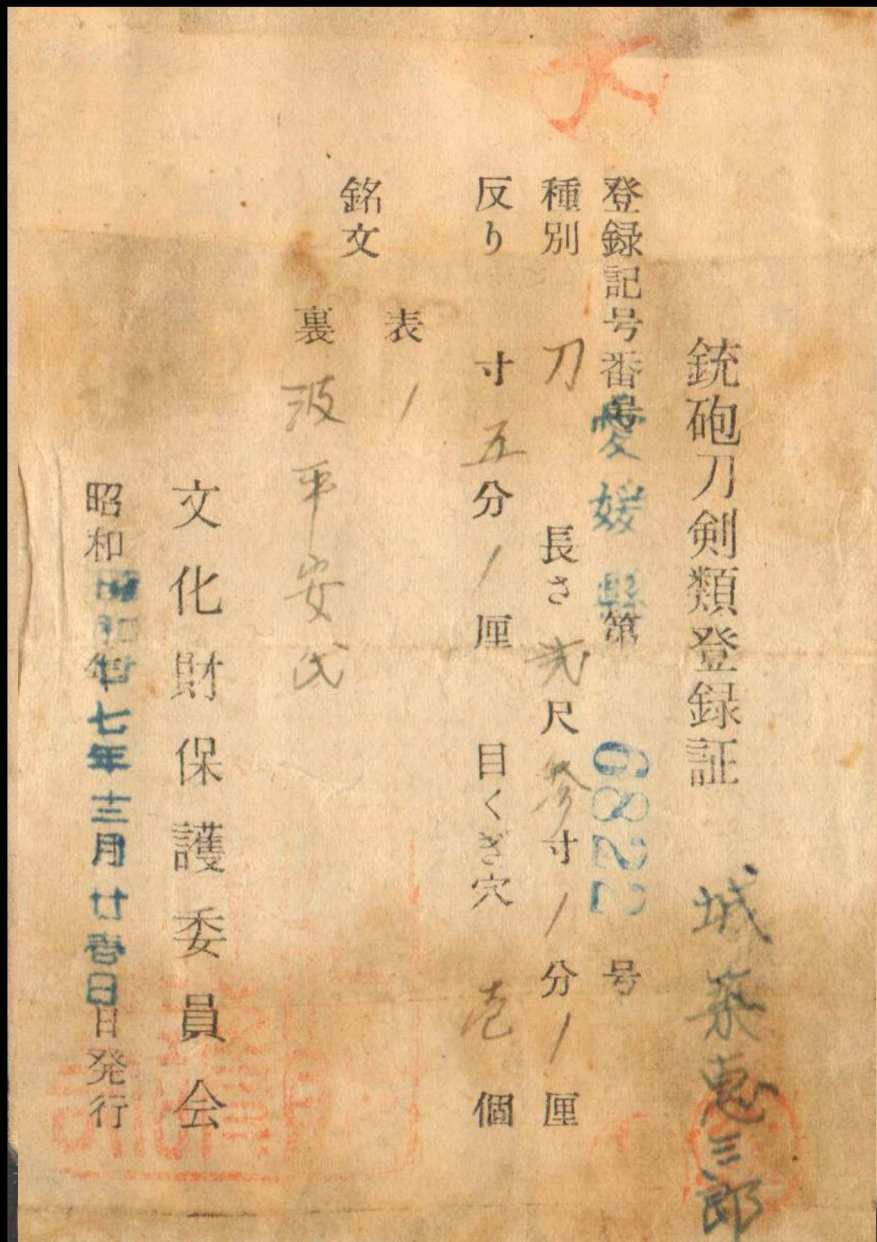 銃砲刀剣類登録証
城築恵三郎
登録記号番号愛媛縣第6822号
種別 刀 長さ弐尺参寸/分/厘
反り 寸五分/厘 目くぎ穴 壱個
銘文
表 /
裏 波平安氏
文化財保護委員会
昭和 昭和廿七年三月廿壱日 日発行